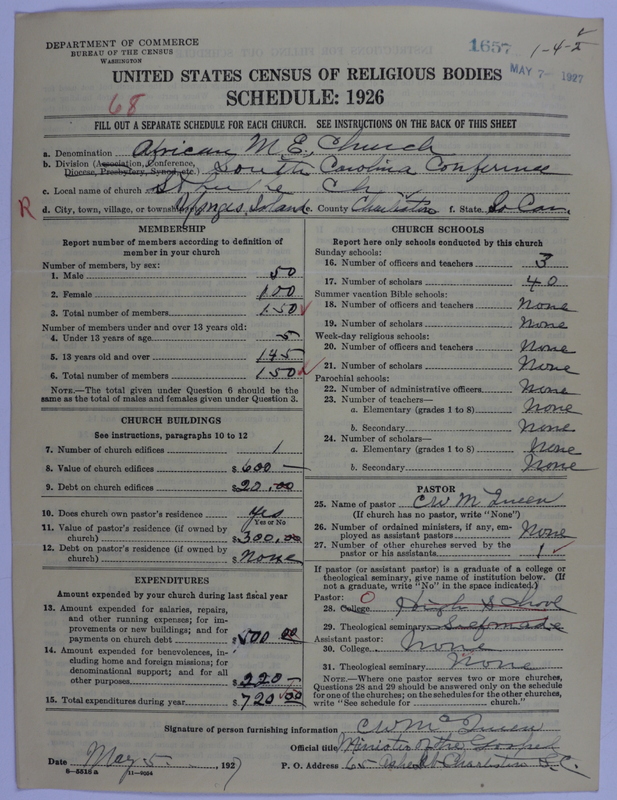 DEPARTMENT OF COMMERCE
BUREAU OF THE CENSUS
WASHINGTON
1657
1-4-2
MAY 7- 1927
UNITED STATES CENSUS OF RELIGIOUS BODIES
SCHEDULE: 1926
68
FILL OUT A SEPARATE SCHEDULE FOR EACH CHURCH. SEE INSTRUCTIONS ON THE BACK OF THIS SHEET
a. Denomination African M.E. Church
b. Division (Association, Conference, Diocese, Presbytery, Synod, etc.) South Carolina Conference
c. Local name of church St Ch
R d. City, town, village, or township Yonges Island e. County Charleston f. State So Car.
MEMBERSHIP
Report number of members according to definition of
member in your church
Number of members, by sex:
1. Male 50
2. Female 100
3. Total number of members 150
Number of members under and over 13 years old:
4. Under 13 years of age 5
5. 13 years old and over 145
6. Total number of members 150
NOTE.—The total given under Question 6 should be the
same as the total of males and females given under Question 3.
CHURCH BUILDINGS
See instructions, paragraphs 10 to 12
7. Number of church edifices 1
8. Value of church edifices $600 —
9. Debt on church edifices $20.00
10. Does church own pastor's residence? yes
Yes or No
11. Value of pastor's residence (if owned by
church) $300.00
12. Debt on pastor's residence (if owned by
church) $None
EXPENDITURES
Amount expended by your church during last fiscal year
13. Amount expended for salaries, repairs,
and other running expenses; for im-
provements or new buildings; and for
payments on church debt $500 00
14. Amount expended for benevolences, in-
cluding home and foreign missions; for
denominational support; and for all
other purposes $220 —
15. Total expenditures during year $720 00
CHURCH SCHOOLS
Report here only schools conducted by this church
Sunday schools:
16. Number of officers and teachers 3
17. Number of scholars 40
Summer vacation Bible schools:
18. Number of officers and teachers None
19. Number of scholars None
Week-day religious schools:
20. Number of officers and teachers None
21. Number of scholars None
Parochial schools:
22. Number of administrative officers None
23. Number of teachers—
a. Elementary (grades 1 to 8) None
b. Secondary None
24. Number of scholars—
a. Elementary (grades 1 to 8) None
b. Secondary None
PASTOR
25. Name of pastor CW McQueen
(If church has no pastor, write "None")
26. Number of ordained ministers, if any, em-
ployed as assistant pastors None
27. Number of other churches served by the
pastor or his assistants 1
If pastor (or assistant pastor) is a graduate of a college or
theological seminary, give name of institution below. (If
not a graduate, write "No" in the space indicated.)
Pastor: 0
28. College High School
29. Theological seminary Selfmade
Assistant pastor:
30. College None
31. Theological seminary None
NOTE.—Where one pastor serves two or more churches,
Questions 28 and 29 should be answered only on the schedule
for one of the churches; on the schedules for the other churches,
write "See schedule for church."
Signature of person furnishing information CW McQueen
Official title Minister of the Gospel
Date May 5, 1927 P. O. Address 65 St Charleston S.C.
8-5516 a 11-9024